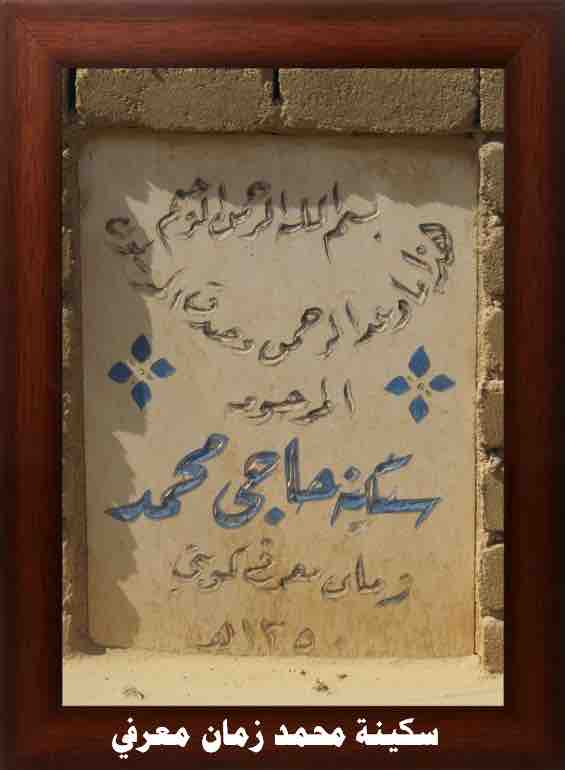 بسم الله الرحمن الرحيم
هذا ما وعد الرحمن وصدق المرسلون
المرحومه
سكينه حاجي محمد
زمان معرفي كويتي
١٣٥٠هـ
سكينة محمد زمان معرفي